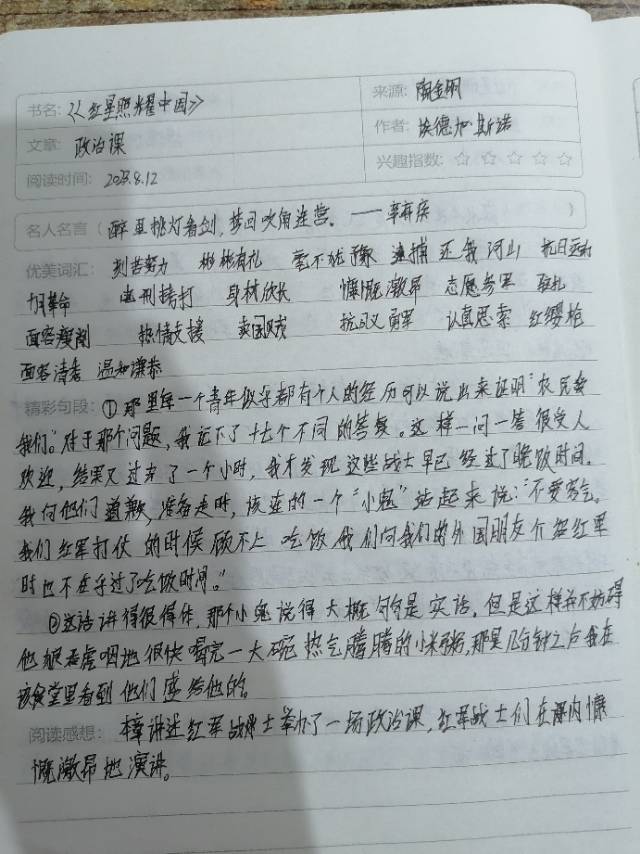 书名: 《红星照耀中国》
来源: 陶金明
文章: 政治课
作者: 埃德加·斯诺
阅读时间: 2023.8.12
兴趣指数: ☆ ☆ ☆ ☆ ☆
名人名言 ( 醉里挑灯看剑,梦回吹角连营。——辛弃疾 )
优美词汇: 刻苦努力 彬彬有礼 毫不犹豫 逮捕 还我河山 抗日运动
革命 严刑拷打 身材欣长 慷慨激昂 志愿参军 驻扎
面容瘦削 热情支援 卖国贼 抗日义勇军 认真思索 红缨枪
面容清秀 温和谦恭
精彩句段: ①那里每一个青年似乎都有个人的经历可以说出来证明“农民会
我们。”对于那个问题,我记下了十七个不同的答复。这样一问一答很受人
欢迎,结果又过去了一个小时,我才发现这些战士早已经过了晚饭时间。
我向他们道歉,准备走时,该连的一个“小鬼”站起来说:“不要客气。
我们红军打仗的时候顾不上吃饭我们向我们的外国朋友介绍红军
时也不在乎过了吃饭时间。”
②这话讲得很得体,那个小鬼说得大概句句是实话。但是这样并不妨碍
他狼吞虎咽地很快喝完一大碗热气腾腾的小米粥,那是几分钟之后我在
该食堂里看到他们盛给他的。
阅读感想: 本章讲述红军战士举办了一场政治课,红军战士们在课内慷
慨激昂地演讲。